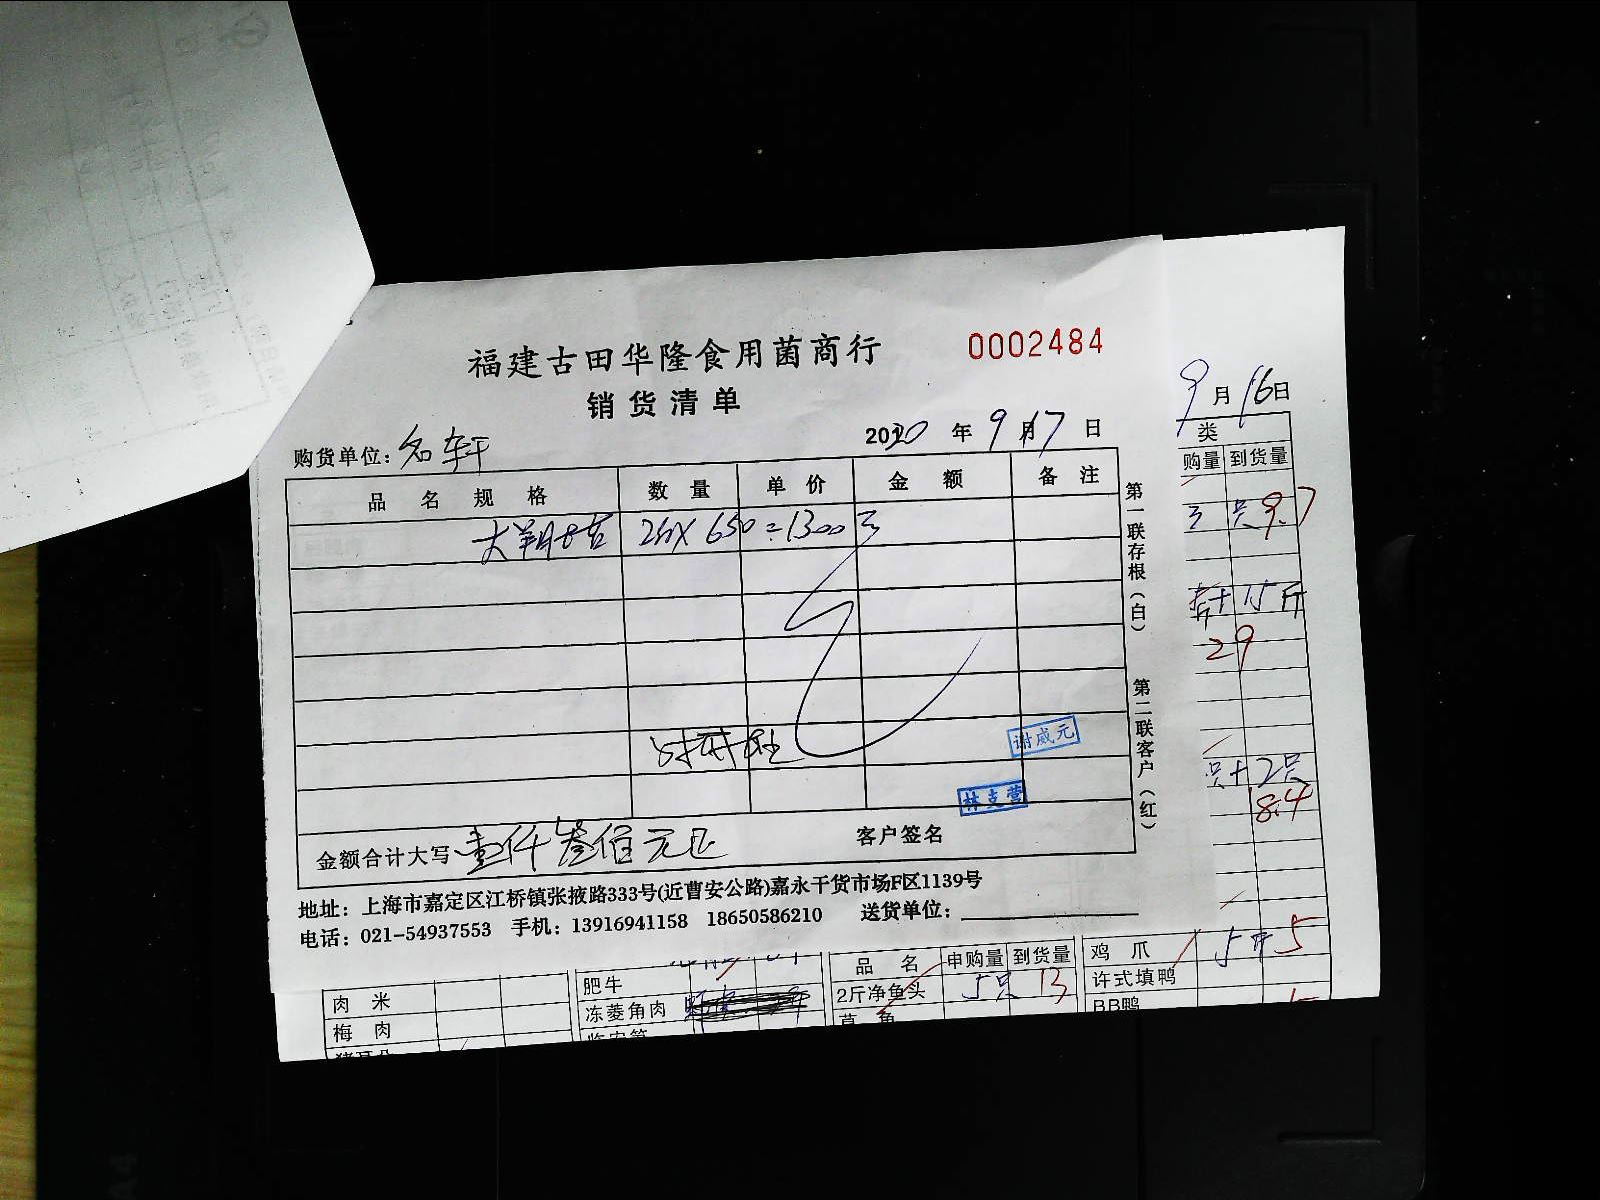 福建古田华隆食用菌商行
0002484
销货清单
购货单位：名轩
2020年9月17日
品名规格 数量 单价 金额 备注
2斤×650=1300元
谢威元
林支营
金额合计大写 壹仟叁佰元正
客户签名
地址：上海市嘉定区江桥镇张掖路333号(近曹安公路)嘉永干货市场F区1139号
电话：021-54937553 手机：13916941158 18650586210 送货单位：
第一联存根（白）
第二联客户（红）
9月16日
类
购量 到货量
只 9.7
15斤
29
只+2只
8.4
肉米
梅肉
肥牛
冻菱角肉
品名 申购量 到货量
2斤净鱼头 5只 13
草鱼
鸡爪 5斤 5
许式填鸭
BB鸭